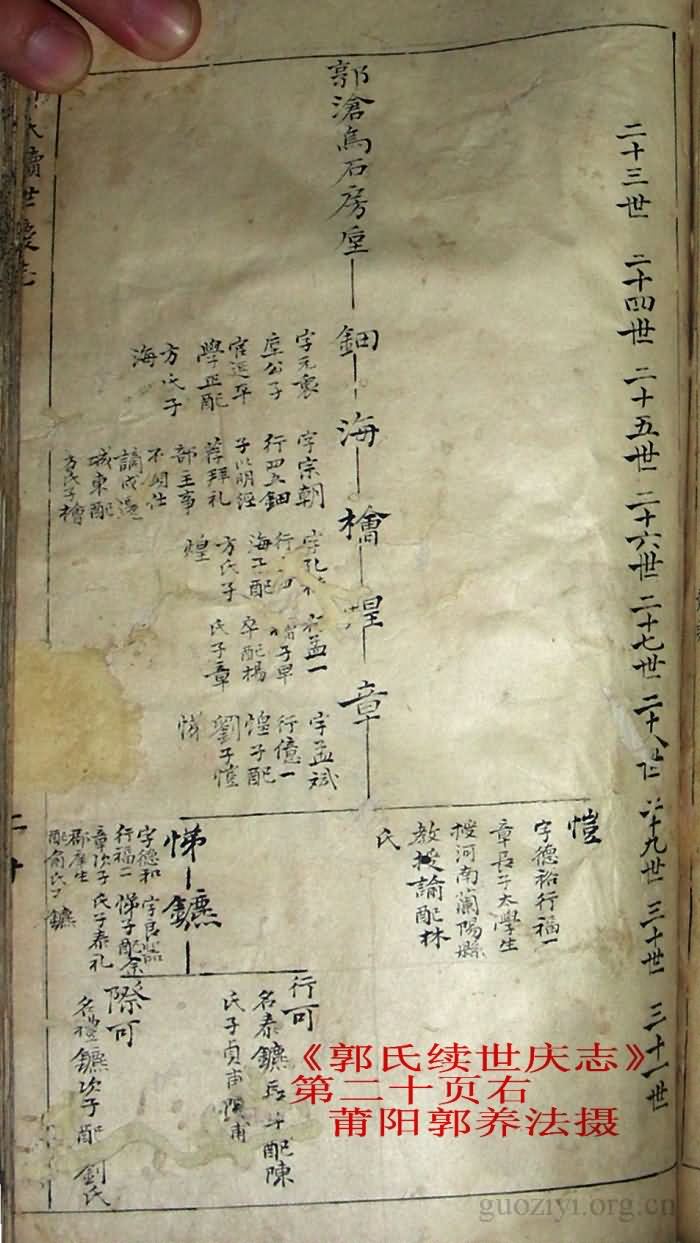 二十三世
二十四世
二十五世
二十六世
二十七世
二十八世
二十九世
三十世
三十一世
郭滄烏石房垕
鈿
字元襄
垕公子
官延平
學正配
方氏子
海
海
字宗朝
行四五鈿
子以明經
荐拜礼
部主事
不閑仕
謫戍邊
城東配
方氏子檜
檜
字孔
行
海子配
方氏子
煌
煌
孟一
檜子早
卒配楊
氏子章
章
字孟斌
行億一
煌子配
劉子愷
悌
愷
字德裕行福一
章長子太學生
授河南蘭陽縣
教授諭配林
氏
悌
字德和
行福二
章次子
郡庠生
配俞氏子鑣
鑣
字良器
悌子配余
氏子泰礼
行可
名泰鑣長子配陳
氏子貞甫
際可
名禮鑣次子配劉氏
續世慶志
二十
《郭氏续世庆志》
第二十页右
莆阳郭养法摄
guoziyi.org.cn